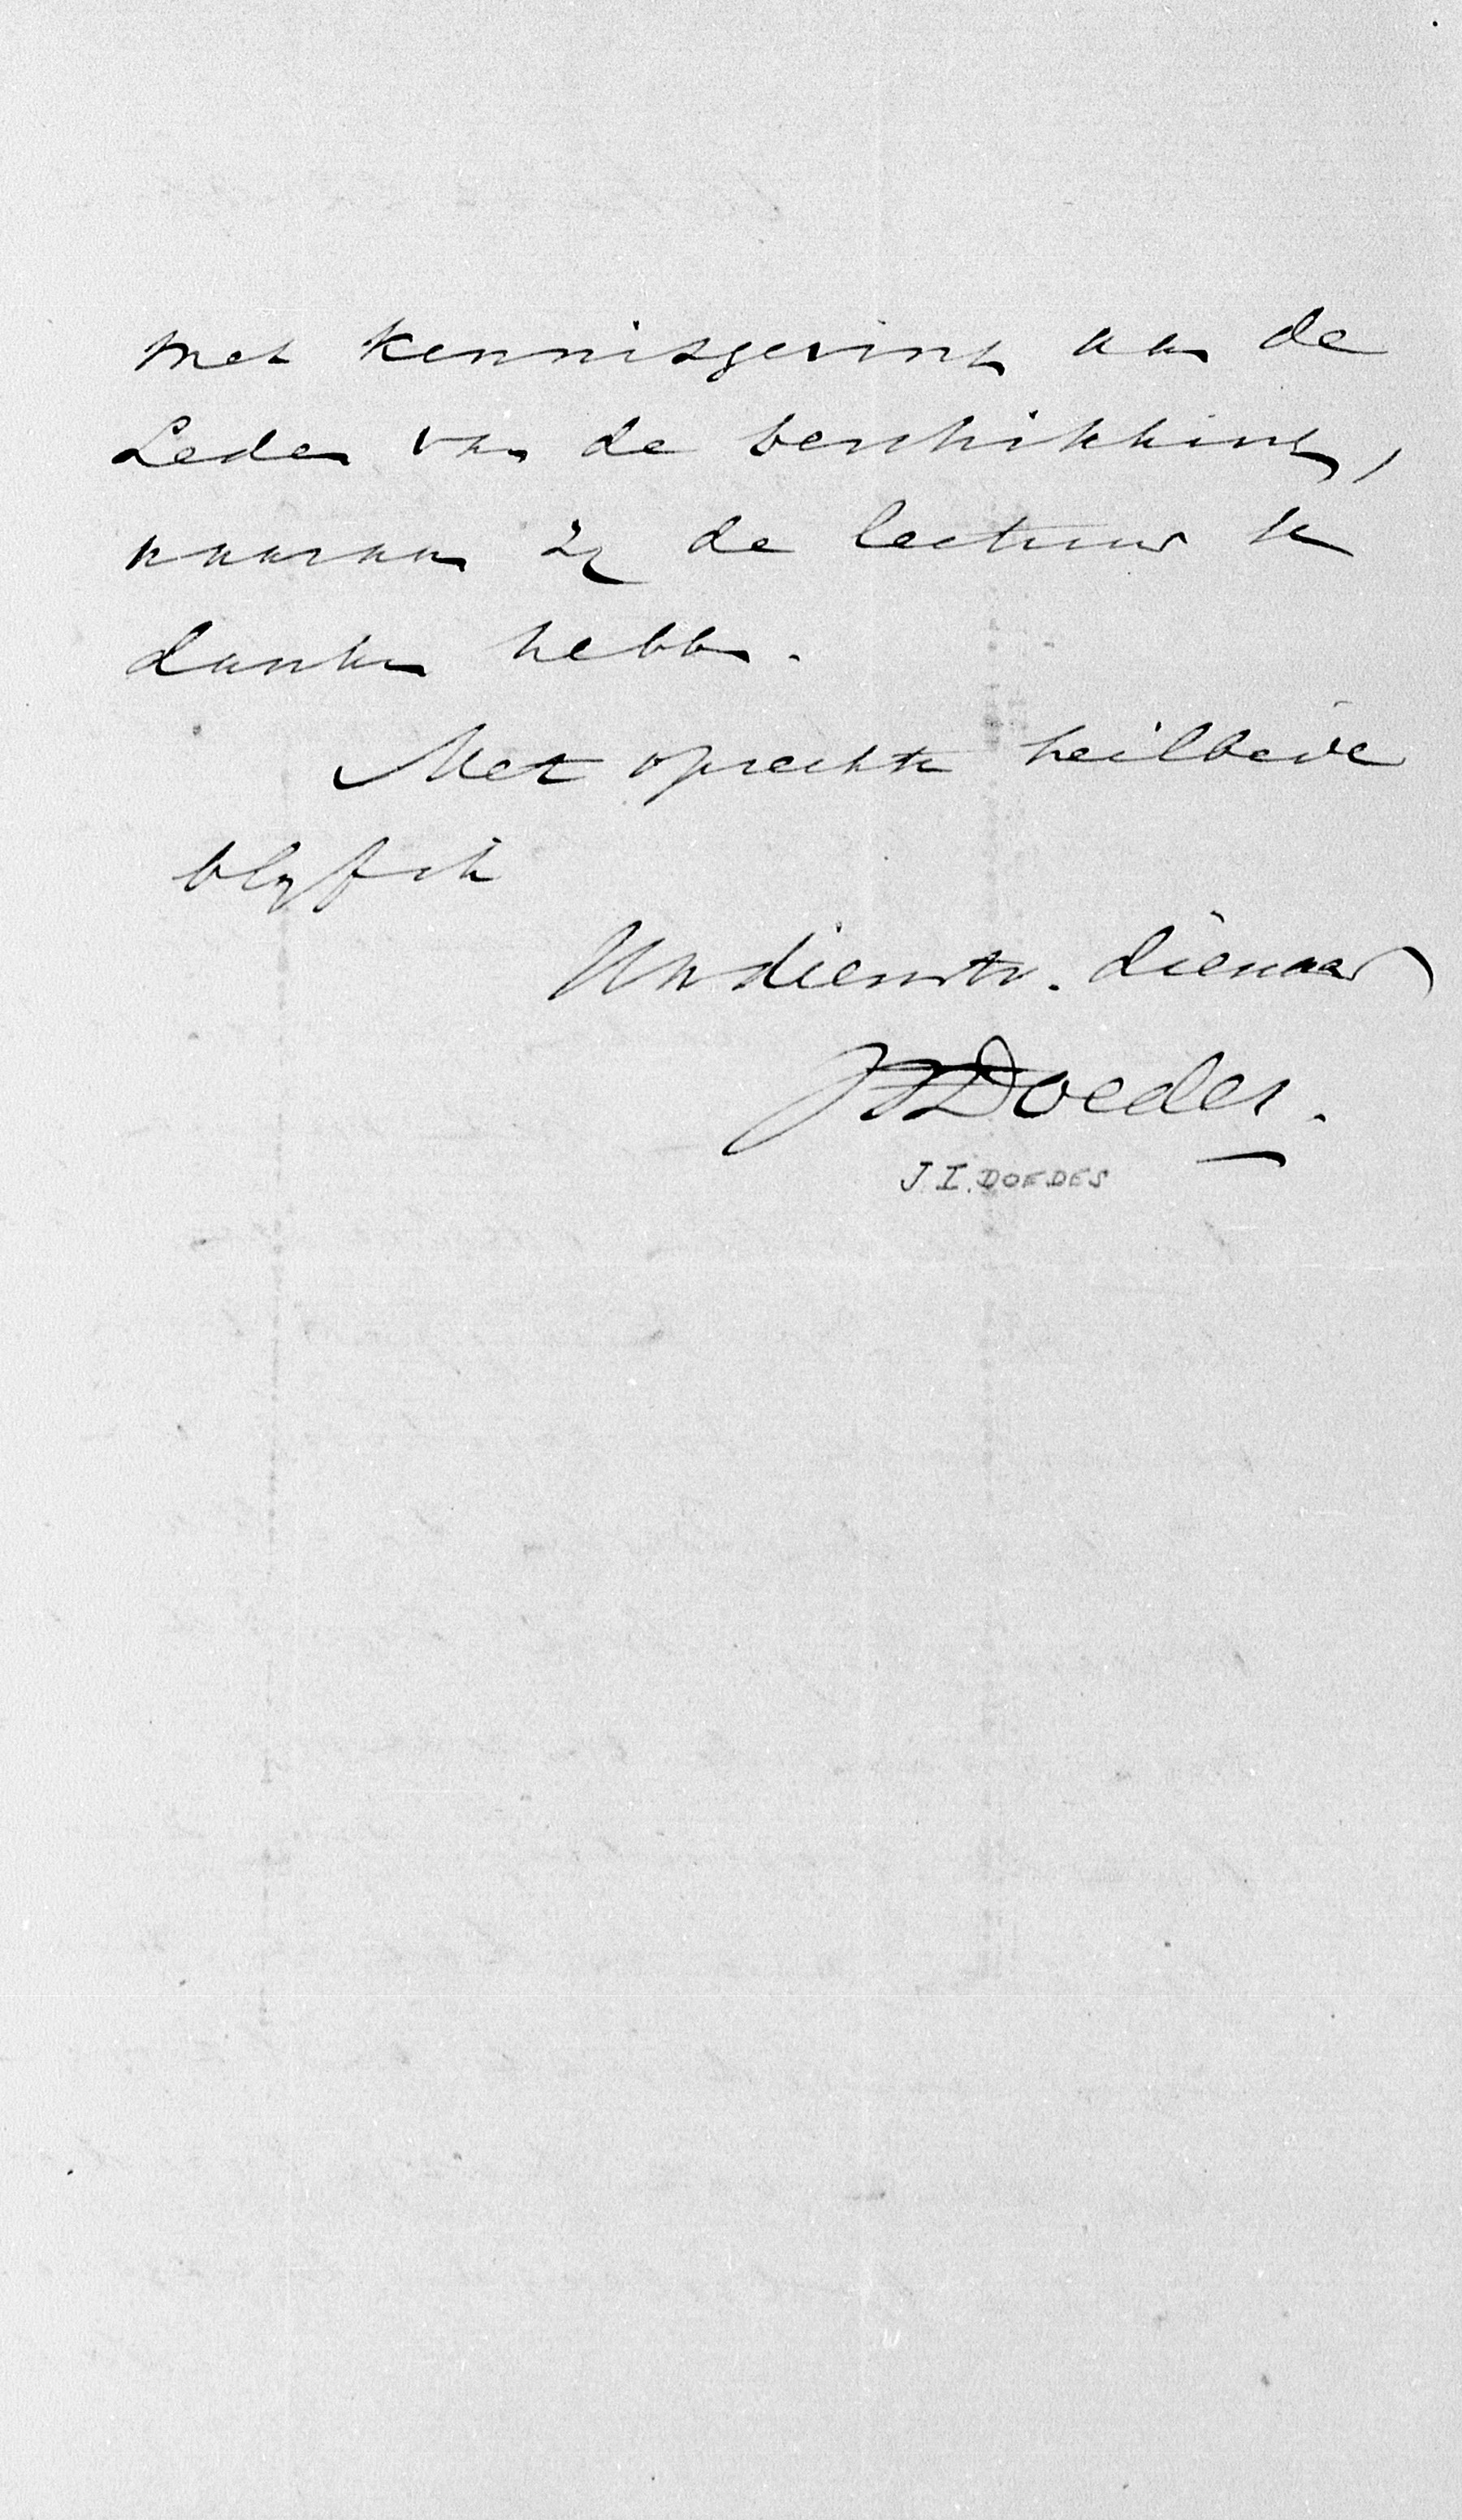 met kennisgeving aan de
Leden van de beschikking,
waaraan zij de lectuur te
danken hebben.
Met oprechte heilbede
blijf ik
Uw dienstw. dienaar
JIDoedes.
J I. DOEDES